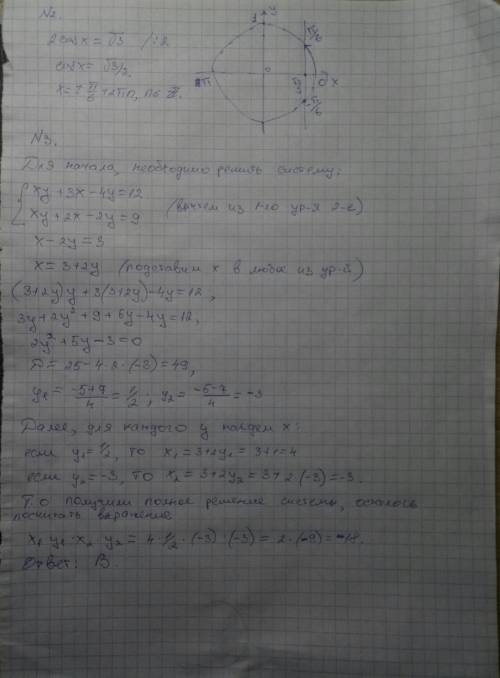 N2.
2cosx = √3 /:2
cosx = √3/2
x = ± π/6 + 2πn, n∈ Z.
1 y
π/6
-π 0 0 x
-π/6
N3.
Для начала, необходимо решить систему:
{ xy + 3x - 4y = 12
xy + 2x - 2y = 9 (вычтем из 1-го ур-я 2-е)
x - 2y = 3
x = 3 + 2y (подставим x в любое из ур-й)
(3+2y)y + 3(3+2y) - 4y = 12,
3y + 2y² + 9 + 6y - 4y = 12,
2y² + 5y - 3 = 0
D = 25 - 4·2·(-3) = 49,
y₁ = (-5+7)/4 = 1/2, y₂ = (-5-7)/4 = -3
Далее, для каждого y найдем x:
если y₁ = 1/2, то x₁ = 3+2y₁ = 3+1 = 4
если y₂ = -3, то x₂ = 3+2y₂ = 3+2·(-3) = -3.
Т.о получили полное решение системы, осталось
посчитать выражение
x₁·y₁·x₂·y₂ = 4·1/2·(-3)·(-3) = 2·(-9) = -18.
Ответ: В.